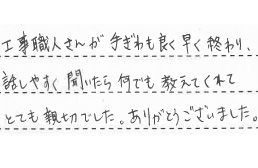 工事職人さんが手ぎわも良く早く終わり、
話しやすく聞いたら何でも教えてくれて
とても親切でした。ありがとうございました。